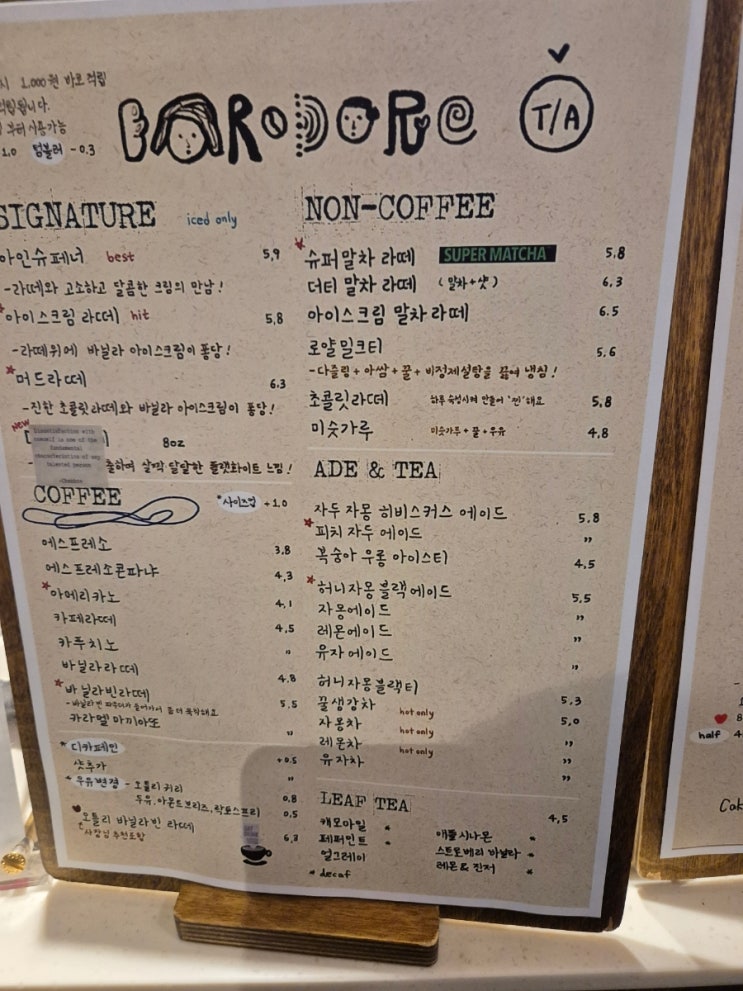 시 1,000원 바로적립
적립됩니다.
부터 사용가능
1.0 텀블러 -0.3
BARODORE T/A
SIGNATURE iced only
아인슈페너 best 5.9
-라떼와 고소하고 달콤한 크림의 만남!
아이스크림 라떼 hit 5.8
-라떼위에 바닐라 아이스크림이 퐁당!
머드라떼 6.3
-진한 초콜릿라떼와 바닐라 아이스크림이 퐁당!
NEW
8oz
Dissatisfaction with
oneself is one of the
fundamental
characteristics of any
talented person
-Chekhov
출하여 살짝 달달한 플랫화이트 느낌!
COFFEE *사이즈업 +1.0
에스프레소 3.8
에스프레소콘파냐 4.3
아메리카노 4.1
카페라떼 4.5
카푸치노 "
바닐라라떼 4.8
바닐라빈라떼 5.5
카라멜 마끼아또 "
* 디카페인 +0.5
샷추가 "
* 우유변경 - 오틀리 귀리 0.8
두유, 아몬드브리즈, 락토스프리 0.5
오틀리 바닐라빈 라떼 6.3
사장님 추천조합
NON-COFFEE
슈퍼말차 라떼 SUPER MATCHA 5.8
더티 말차 라떼 (말차+샷) 6.3
아이스크림 말차라떼 6.5
로얄밀크티 5.6
-다즐링+아쌈+꿀+비정제설탕을 끓여 냉침!
초콜릿라떼 하루 숙성시켜 만들어 '찐'해요 5.8
미숫가루 미숫가루+꿀+우유 4.8
ADE & TEA
자두 자몽 히비스커스 에이드 5.8
피치 자두 에이드 "
복숭아 우롱 아이스티 4.5
허니자몽블랙에이드 5.5
자몽에이드 "
레몬에이드 "
유자에이드 "
허니자몽블랙티 5.3
꿀생강차 hot only 5.0
자몽차 hot only "
레몬차 hot only "
유자차 "
LEAF TEA 4.5
캐모마일 * 애플시나몬 *
페퍼민트 * 스트로베리 바닐라 *
얼그레이 레몬&진저 *
* decaf
half 4